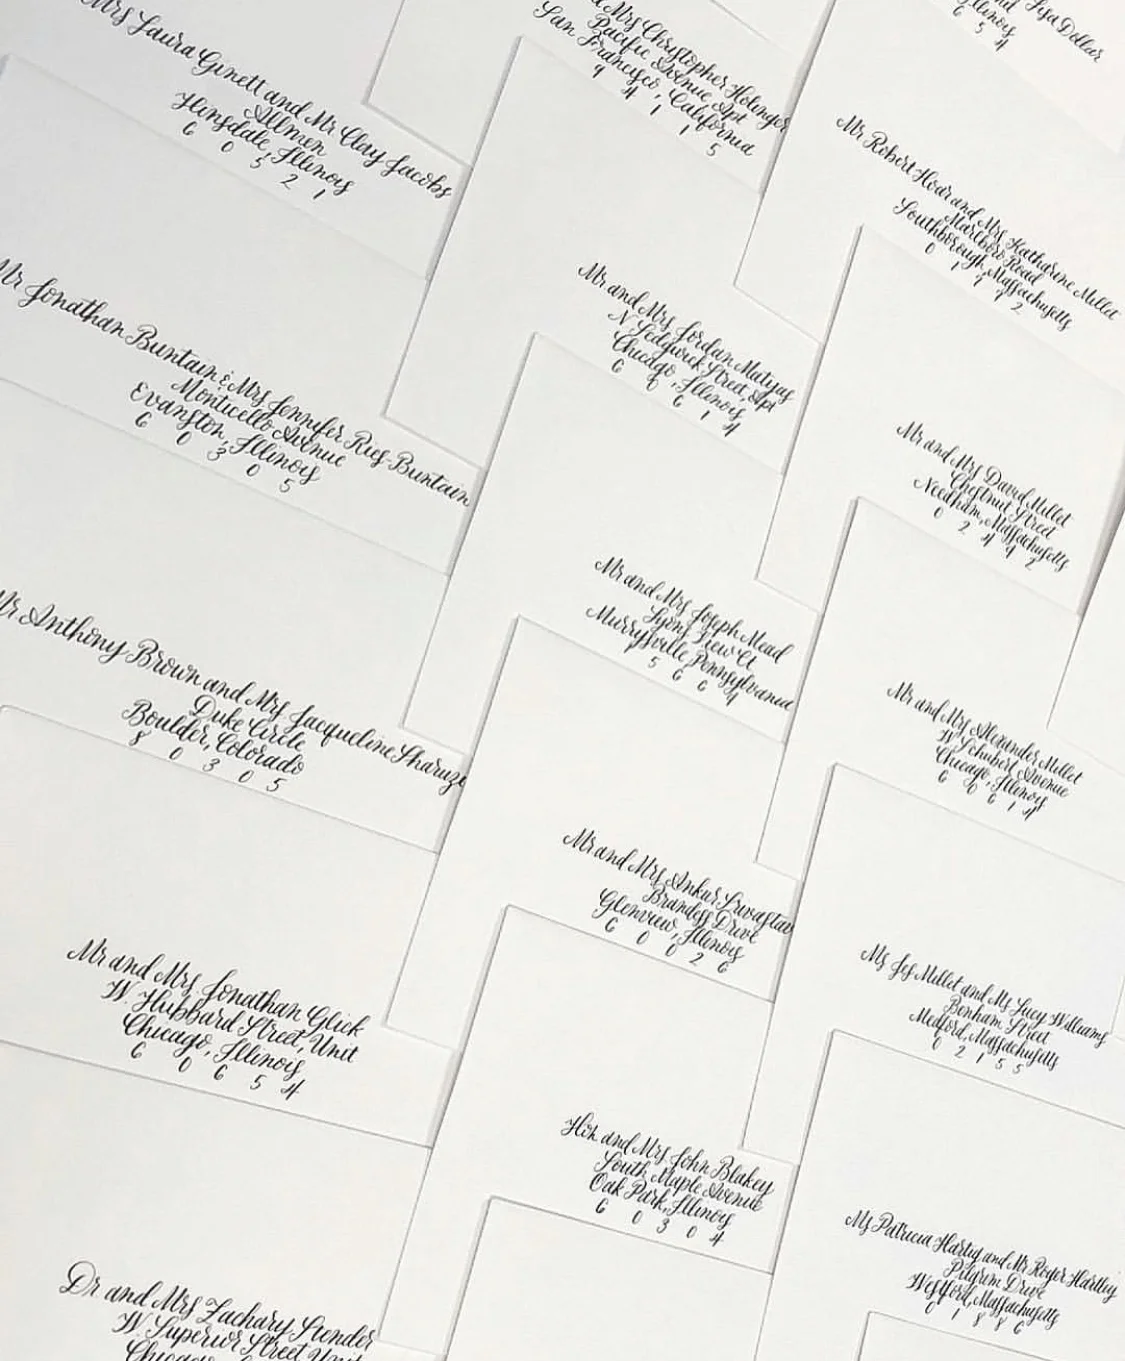 Mrs Laura Ginett and Mr Clay Jacobs
Allmen
Hinsdale, Illinois
6 0 5 2 1
Mr Jonathan Buntain & Mrs Jennifer Ries-Buntain
Monticello Avenue
Evanston, Illinois
6 0 3 0 5
Mr Anthony Brown and Mrs Jacqueline
Duke Circle
Boulder, Colorado
8 0 3 0 5
Mr and Mrs. Jonathan Glick
W. Hubbard Street, Unit
Chicago, Illinois
6 0 6 5 4
Dr and Mrs Zachary Stender
W. Superior Street Unit
Chicago
Mrs Christopher Holinger
Pacific Avenue, Apt
San Francisco, California
9 4 1 1 5
Mr and Mrs Jordan Matyas
N Sedgwick Street, Apt
Chicago, Illinois
6 0 6 1 4
Mr and Mrs Joseph Mead
Lyons View Ct
Murrysville, Pennsylvania
1 5 6 6 8
Mr and Mrs Ankur Srivastav
Brandess Drive
Glenview, Illinois
6 0 0 2 6
Hon. and Mrs John Blakey
South Maple Avenue
Oak Park, Illinois
6 0 3 0 4
Lisa Dollar
Illinois
6 5 4
Mr Robert Hoar and Mrs Katharine Millet
Marlboro Road
Southborough, Massachusetts
0 1 7 7 2
Mr and Mrs David Millet
Chestnut Street
Needham, Massachusetts
0 2 4 9 2
Mr and Mrs Alexander Millet
W Schubert Avenue
Chicago, Illinois
6 0 6 1 4
Ms Jes Millet and Ms Lucy Williams
Bonham Street
Medford, Massachusetts
0 2 1 5 5
Ms Patricia Hartig and Mr Roger Hartley
Pilgrim Drive
Westford, Massachusetts
0 1 8 8 6